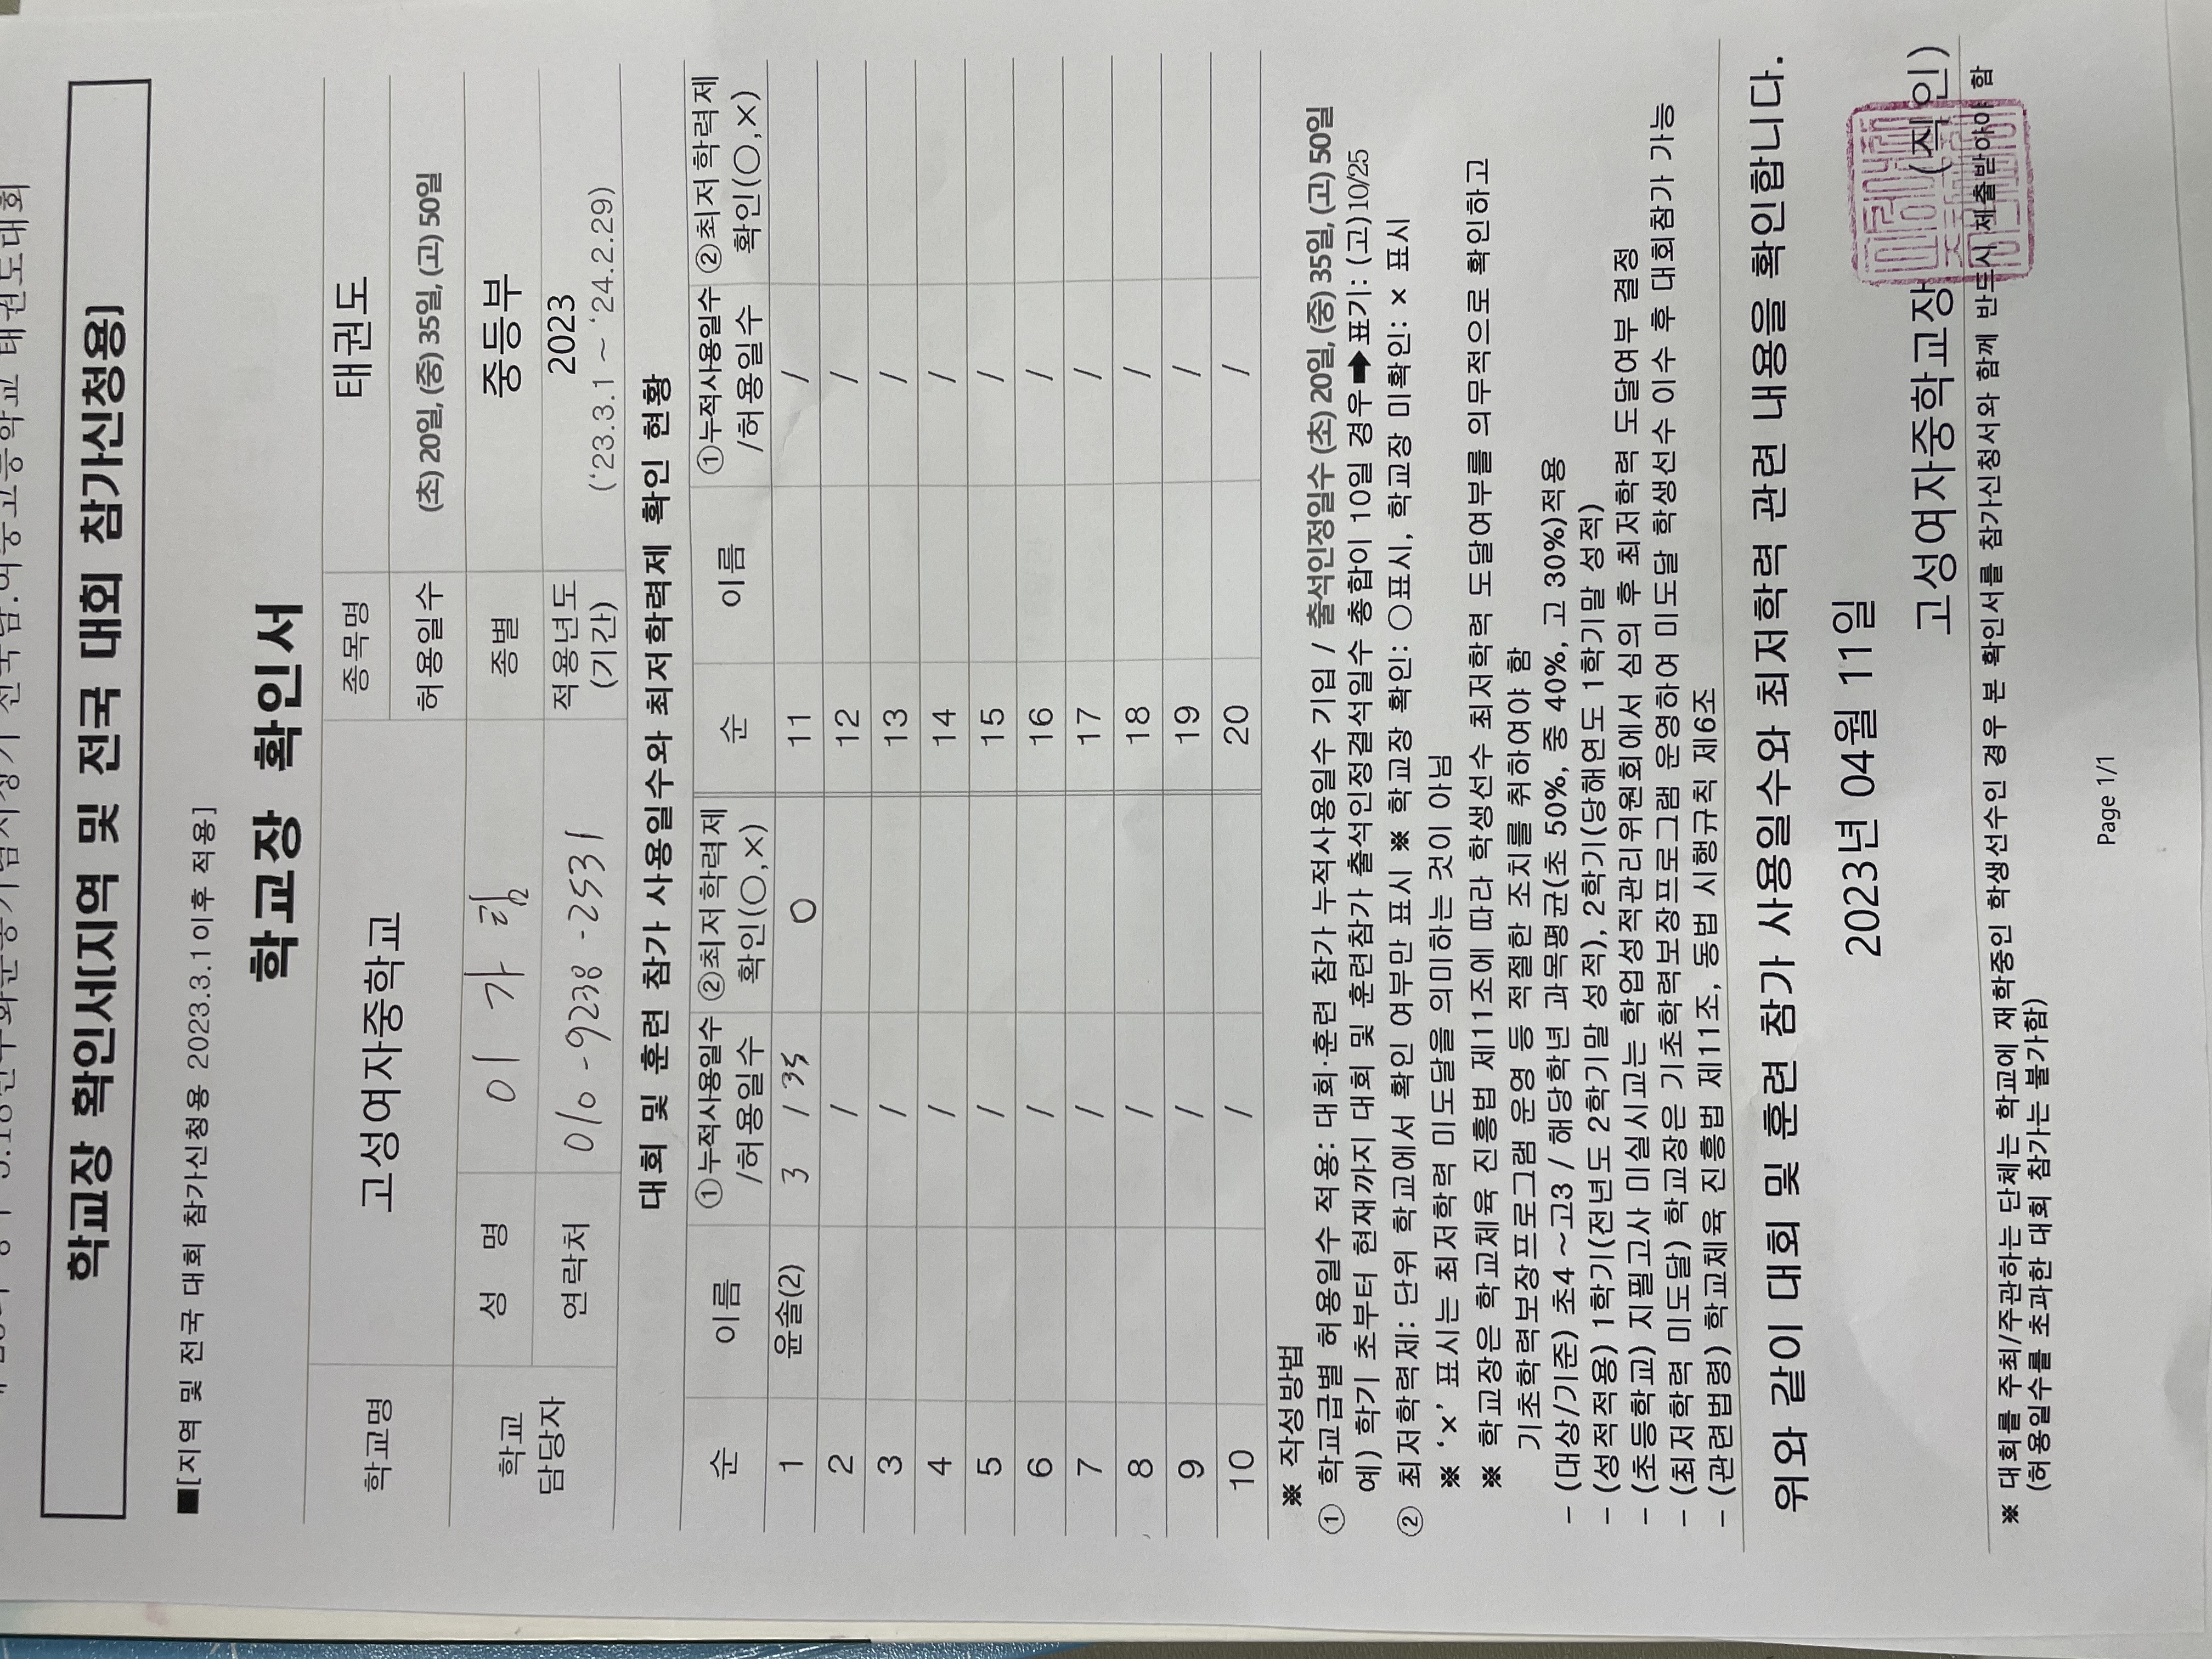 학교장 확인서[지역 및 전국 대회 참가신청용]
■[지역 및 전국 대회 참가신청용 2023.3.1 이후 적용]
학교장 확인서
학교명 고성여자중학교 종목명 태권도
허용일수 (초) 20일, (중) 35일, (고) 50일
학교 담당자 성 명 이 가 림 종별 중등부
연락처 010-9238-2531 적용년도 (기간) 2023 ('23.3.1 ~ '24.2.29)
대회 및 훈련 참가 사용일수와 최저학력제 확인 현황
순 이름 ①누적사용일수 /허용일수 ②최저학력제 확인(○,×) 순 이름 ①누적사용일수 /허용일수 ②최저학력제 확인(○,×)
1 윤솔(2) 3 / 35 ○ 11 /
2 / 12 /
3 / 13 /
4 / 14 /
5 / 15 /
6 / 16 /
7 / 17 /
8 / 18 /
9 / 19 /
10 / 20 /
※ 작성방법
① 학교급별 허용일수 적용: 대회·훈련 참가 누적사용일수 기입 / 출석인정일수 (초) 20일, (중) 35일, (고) 50일
예) 학기 초부터 현재까지 대회 및 훈련참가 출석인정결석일수 총합이 10일 경우 ➡ 표기: (고)10/25
② 최저학력제: 단위 학교에서 확인 여부만 표시 ※ 학교장 확인: ○표시, 학교장 미확인: × 표시
※ '×' 표시는 최저학력 미도달을 의미하는 것이 아님
※ 학교장은 학교체육 진흥법 제11조에 따라 학생선수 최저학력 도달여부를 의무적으로 확인하고
기초학력보장프로그램 운영 등 적절한 조치를 취하여야 함
- (대상/기준) 초4 ~고3 / 해당학년 과목평균(초 50%, 중 40%, 고 30%)적용
- (성적적용) 1학기(전년도 2학기말 성적), 2학기(당해연도 1학기말 성적)
- (초등학교) 지필고사 미실시교는 학업성적관리위원회에서 심의 후 최저학력 도달여부 결정
- (최저학력 미도달) 학교장은 기초학력보장프로그램 운영하여 미도달 학생선수 이수 후 대회참가 가능
- (관련법령) 학교체육 진흥법 제11조, 동법 시행규칙 제6조
위와 같이 대회 및 훈련 참가 사용일수와 최저학력 관련 내용을 확인합니다.
2023년 04월 11일
고성여자중학교장 (직 인)
※ 대회를 주최/주관하는 단체는 학교에 재학중인 학생선수인 경우 본 확인서를 참가신청서와 함께 반드시 제출받아야 함
(허용일수를 초과한 대회 참가는 불가함)
Page 1/1